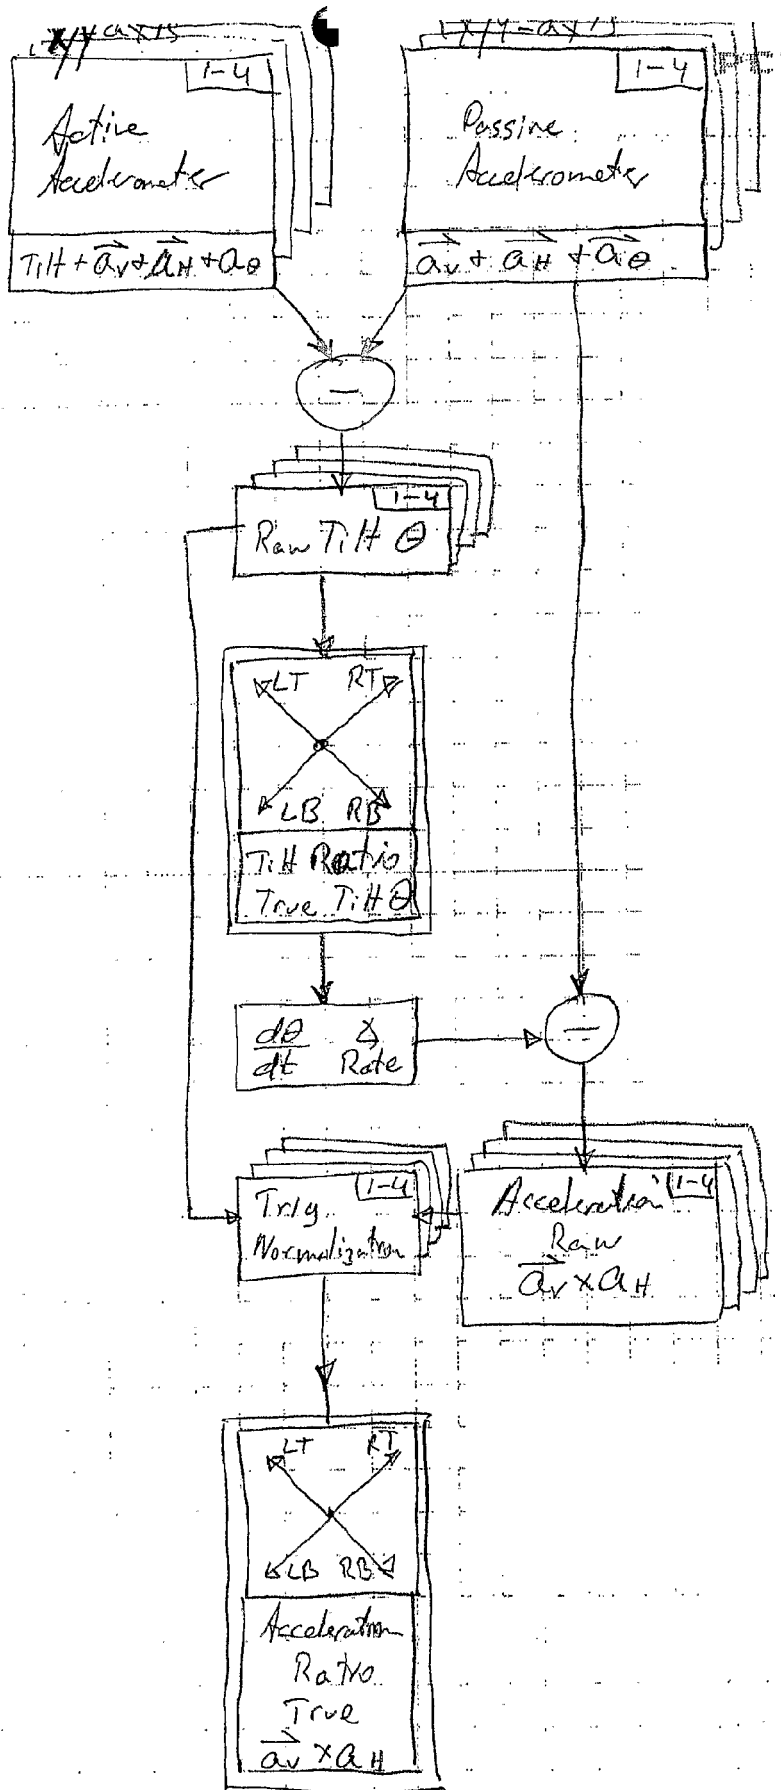 x/y axis
(x/y-axis)
1-4
Active
Accelerometer
Tilt + av + aH + aθ
1-4
Passive
Accelerometer
av + aH + aθ
−
1-4
Raw Tilt θ
LT RT
LB RB
Tilt Ratio
True Tilt θ
dθ/dt ∡
Rate
−
1-4
Trig
Normalization
1-4
Acceleration
Raw
av x aH
LT RT
LB RB
Acceleration
Ratio
True
av x aH